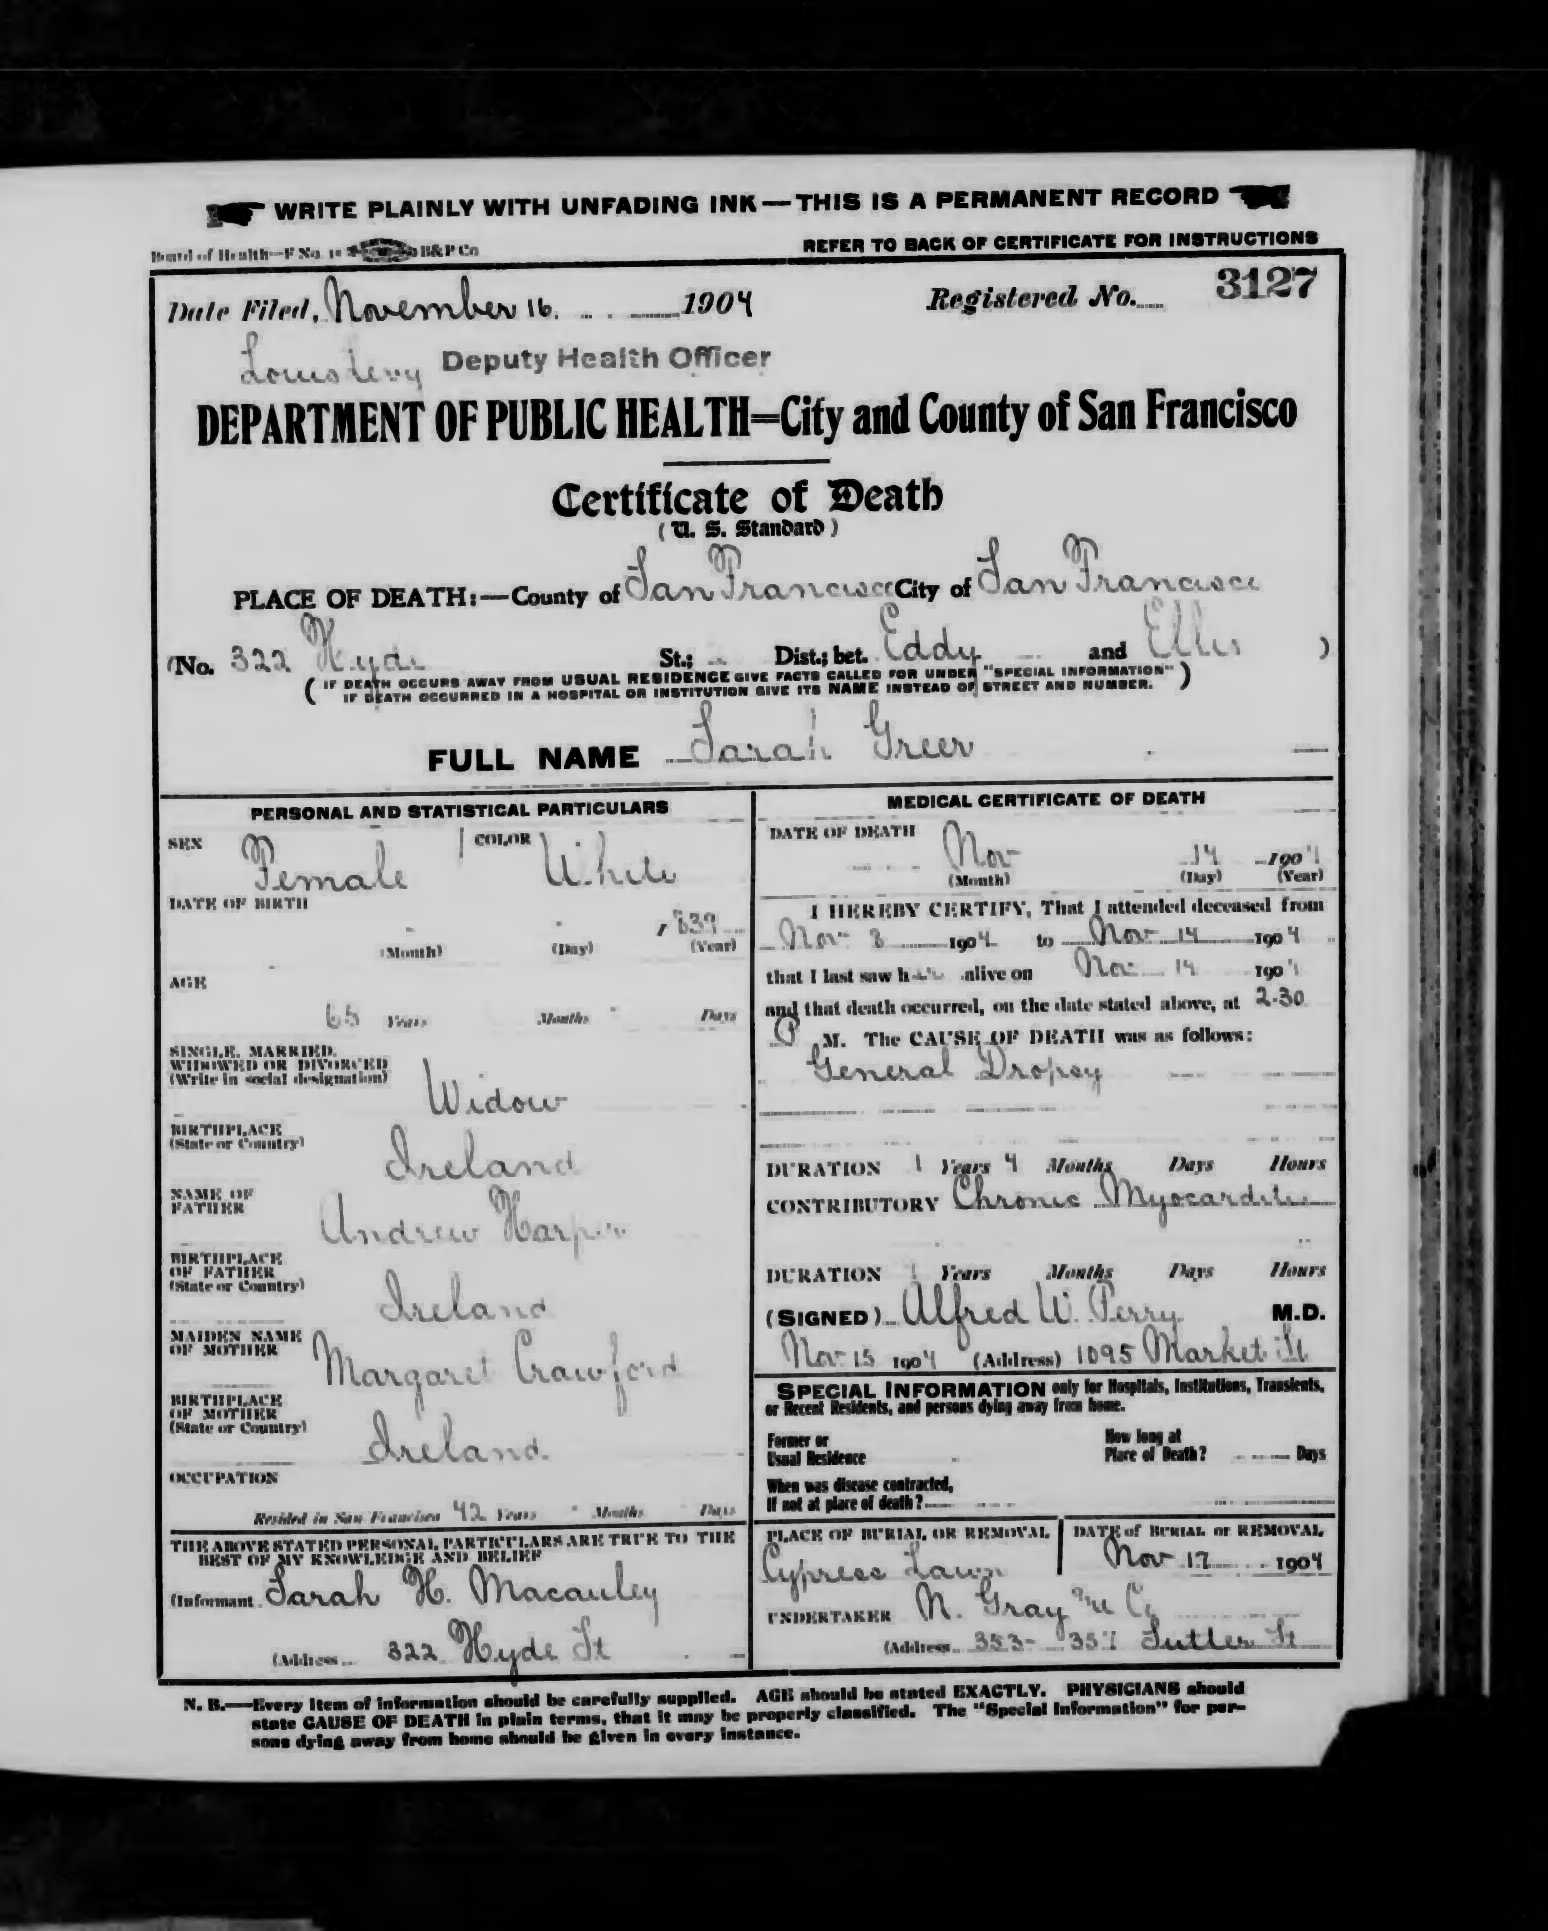 WRITE PLAINLY WITH UNFADING INK—THIS IS A PERMANENT RECORD
Board of Health—F No. B&P Co
REFER TO BACK OF CERTIFICATE FOR INSTRUCTIONS
Date Filed, November 16. 1904 Registered No. 3127
Louis Levy Deputy Health Officer
DEPARTMENT OF PUBLIC HEALTH=City and County of San Francisco
Certificate of Death
(U. S. Standard)
PLACE OF DEATH:—County of San Francisco City of San Francisco
(No. 322 Hyde St.; Dist.; bet. Eddy and Ellis )
(IF DEATH OCCURS AWAY FROM USUAL RESIDENCE GIVE FACTS CALLED FOR UNDER "SPECIAL INFORMATION"
IF DEATH OCCURRED IN A HOSPITAL OR INSTITUTION GIVE ITS NAME INSTEAD OF STREET AND NUMBER.)
FULL NAME Sarah Greer
PERSONAL AND STATISTICAL PARTICULARS
SEX Female COLOR White
DATE OF BIRTH
1839
(Month) (Day) (Year)
AGE
65 Years Months Days
SINGLE, MARRIED,
WIDOWED OR DIVORCED
(Write in social designation)
Widow
BIRTHPLACE
(State or Country)
Ireland
NAME OF
FATHER
Andrew Harper
BIRTHPLACE
OF FATHER
(State or Country)
Ireland
MAIDEN NAME
OF MOTHER
Margaret Crawford
BIRTHPLACE
OF MOTHER
(State or Country)
Ireland.
OCCUPATION
Resided in San Francisco 42 Years Months Days
THE ABOVE STATED PERSONAL PARTICULARS ARE TRUE TO THE
BEST OF MY KNOWLEDGE AND BELIEF
(Informant Sarah H. Macauley
(Address 322 Hyde St
MEDICAL CERTIFICATE OF DEATH
DATE OF DEATH
Nov 14 1904
(Month) (Day) (Year)
I HEREBY CERTIFY, That I attended deceased from
Nov 8 1904 to Nov 14 1904
that I last saw her alive on Nov 14 1904
and that death occurred, on the date stated above, at 2.30
P M. The CAUSE OF DEATH was as follows:
General Dropsy
DURATION 1 Years 4 Months Days Hours
CONTRIBUTORY Chronic Myocarditis
DURATION 1 Years Months Days Hours
(SIGNED) Alfred W. Perry M.D.
Nov 15 1904 (Address) 1095 Market St
SPECIAL INFORMATION only for Hospitals, Institutions, Transients,
or Recent Residents, and persons dying away from home.
Former or
Usual Residence
How long at
Place of Death? Days
When was disease contracted,
If not at place of death?
PLACE OF BURIAL OR REMOVAL
Cypress Lawn
DATE of BURIAL or REMOVAL
Nov 17 1904
UNDERTAKER N. Gray and Co
(Address 353-357 Sutter St
N. B.—Every item of information should be carefully supplied. AGE should be stated EXACTLY. PHYSICIANS should
state CAUSE OF DEATH in plain terms, that it may be properly classified. The "Special Information" for per-
sons dying away from home should be given in every instance.